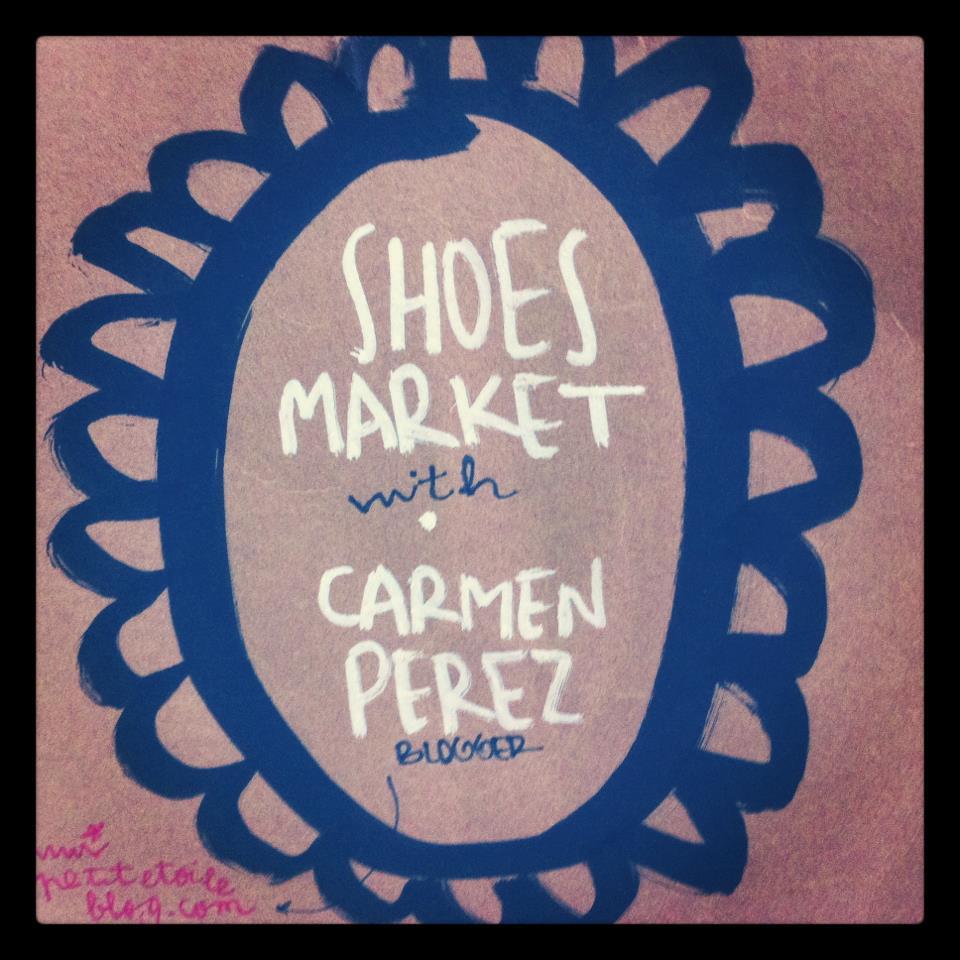 SHOES
MARKET
with
CARMEN
PEREZ
BLOGGER
mi
petitetoile
blog.com